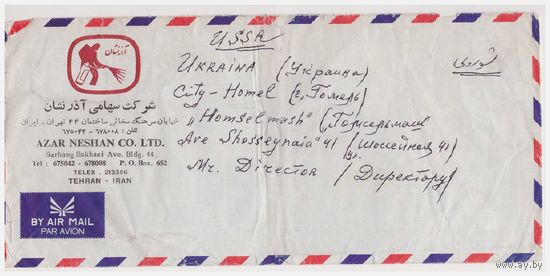 آذرنشان
شرکت سهامی آذرنشان
خیابان سرهنگ سخائی ساختمان ۴۴ تهران - ایران
تلفن : ۶۷۸۰۰۸ - ۶۷۵۰۴۲
AZAR NESHAN CO. LTD.
Sarhang Sakhaei Ave. Bldg. 44,
Tel : 675042 - 678008 P. O. Box. 652
TELEX . 213366
TEHRAN - IRAN
BY AIR MAIL
PAR AVION
USSR
شوروی
UKRAINA (Украина)
City-Homel (г. Гомель)
„Homselmash" (Гомсельмаш)
Ave Shosseynaia 41 (Шоссейная 41)
Mr. Director (Директору)
www.ay.by